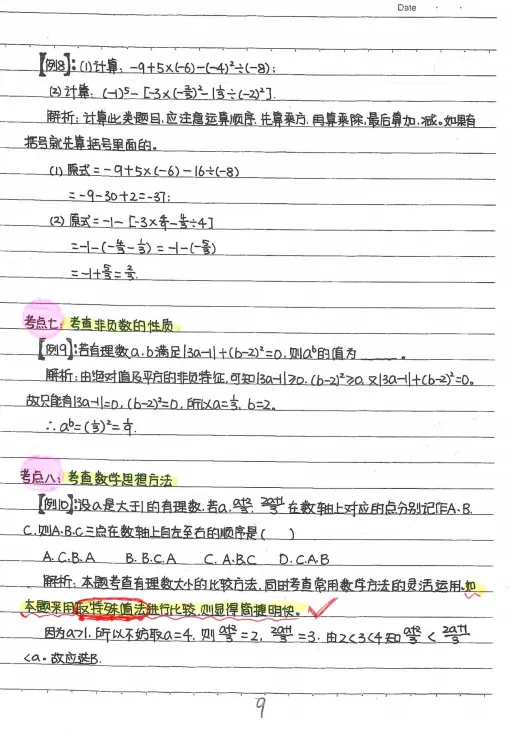 Date · ·
【例8】:(1)计算: -9+5×(-6)-(-4)²÷(-8);
(2)计算: (-1)⁵-[-3×(-2/3)²-1 1/3÷(-2)²].
解析: 计算此类题目, 应注意运算顺序, 先算乘方, 再算乘除, 最后算加、减。如果有
括号就先算括号里面的。
(1) 原式=-9+5×(-6)-16÷(-8)
=-9-30+2=-37;
(2) 原式=-1-[-3×4/9-4/3÷4]
=-1-(-4/3-1/3)=-1-(-5/3)
=-1+5/3=2/3.
考点七: 考查非负数的性质
【例9】:若有理数a、b满足|3a-1|+(b-2)²=0, 则aᵇ的值为____。
解析: 由绝对值及平方的非负特征, 可知|3a-1|≥0, (b-2)²≥0, 又|3a-1|+(b-2)²=0。
故只能有|3a-1|=0, (b-2)²=0, 所以a=1/3, b=2。
∴aᵇ=(1/3)²=1/9.
考点八: 考查数学思想方法
【例10】:设a是大于1的有理数, 若a, (a+2)/3, (2a+1)/3 在数轴上对应的点分别记作A、B、
C, 则A、B、C三点在数轴上自左至右的顺序是( )
A. C、B、A B. B、C、A C. A、B、C D. C、A、B
解析: 本题考查有理数大小的比较方法, 同时考查常用数学方法的灵活运用。如
本题采用取特殊值法进行比较, 则显得简捷明快。
因为a>1, 所以不妨取a=4, 则(a+2)/3=2, (2a+1)/3=3, 由2<3<4知(a+2)/3<(2a+1)/3
<a。故应选B.
9